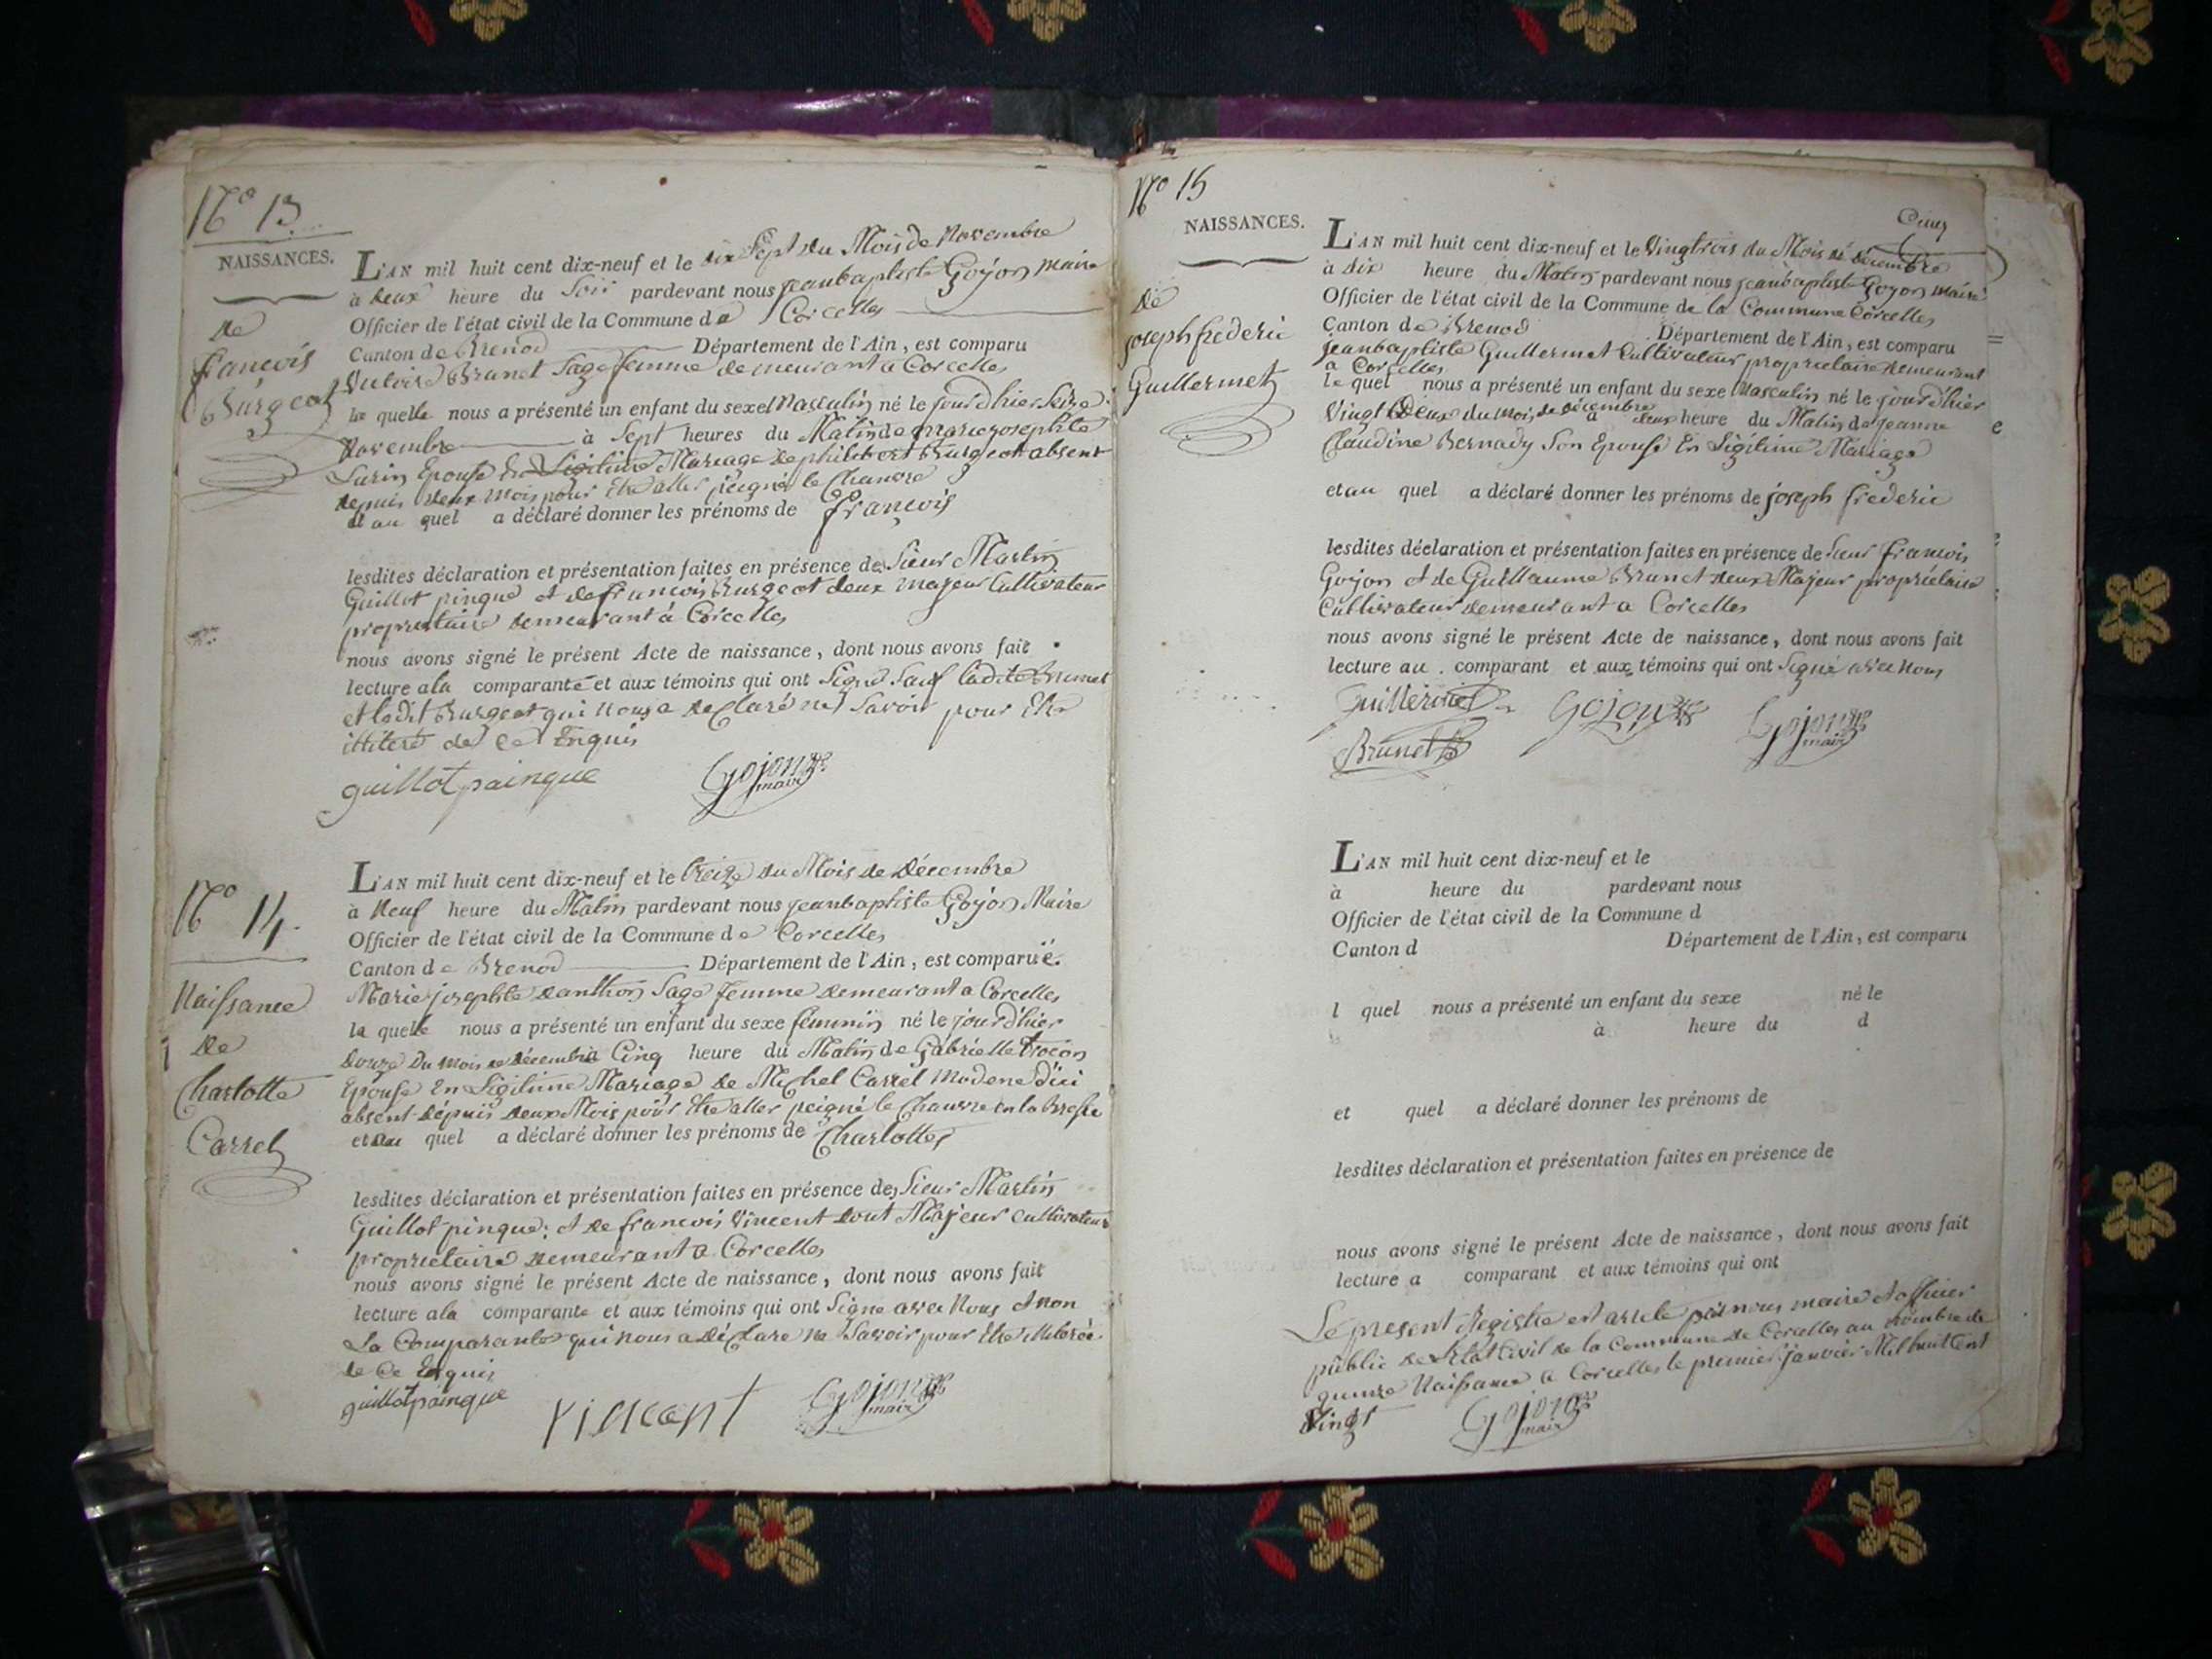 N.o 13
NAISSANCES.
de
françois
Burgeot
L'AN mil huit cent dix-neuf et le dix Sept du Mois de Novembre
à deux heure du Soir pardevant nous jeanbaptiste Gojon maire
Officier de l'état civil de la Commune de Corcelles
Canton de Brenod Département de l'Ain, est comparu
Victoire Brunet Sage femme demeurant a Corcelles
la quelle nous a présenté un enfant du sexe Masculin né le jourdhier Seize
Novembre à Sept heures du Matin de marie josephte
Epouse En Légitime Mariage de philibert Burgeot absent
depuis deux mois pour Etre aller peigné le Chanvre
et au quel a déclaré donner les prénoms de françois
lesdites déclaration et présentation faites en présence de Sieur Martin
Guillot pinque et de françois Burgeot deux majeur Cultivateur
propriétaire demeurant à Corcelles
nous avons signé le présent Acte de naissance, dont nous avons fait
lecture a la comparante et aux témoins qui ont Signé Sauf ladite Brunet
et ledit Burgeot qui nous a déclaré ne Savoir pour Etre
illiteré de Ce Enquis
guillot painque Gojon maire
N.o 14.
Naissance
de
Charlotte
Carrel
L'AN mil huit cent dix-neuf et le treize du Mois de Décembre
à Neuf heure du Matin pardevant nous jeanbaptiste Gojon Maire
Officier de l'état civil de la Commune de Corcelles
Canton de Brenod Département de l'Ain, est comparuë.
Marie josephte danthon Sage femme demeurant a Corcelles
la quelle nous a présenté un enfant du sexe féminin né le jourdhier
douze Du mois de décembre a Cinq heure du Matin de Gabrielle
Epouse En Légitime Mariage de Michel Carrel Modene d'ici
absent dépuis deux Mois pour Etre aller peigné le Chanvre en la Bresse
et au quel a déclaré donner les prénoms de Charlotte
lesdites déclaration et présentation faites en présence des Sieur Martin
Guillot pinque: et de francois Vincent tout Majeur cultivateur
propriétaire demeurant a Corcelles
nous avons signé le présent Acte de naissance, dont nous avons fait
lecture a la comparante et aux témoins qui ont Signe avec Nous et non
La Comparante qui nous a déclaré ne Savoir pour Etre illiterée
de Ce Enquis
guillot painque Vincent Gojon maire
N.o 15
NAISSANCES.
de
joseph frederic
Guillermet
L'AN mil huit cent dix-neuf et le Vingtrois du Mois de décembre
à dix heure du Matin pardevant nous jeanbaptiste Gojon maire
Officier de l'état civil de la Commune de la Commune Corcelles
Canton de Brenod Département de l'Ain, est comparu
jeanbaptiste Guillermet Cultivateur propriétaire demeurant
a Corcelles
le quel nous a présenté un enfant du sexe Masculin né le jourdhier
Vingt Deux du mois de décembre à deux heure du Matin de jeanne
Claudine Bernady Son Epouse En Légitime Mariage
et au quel a déclaré donner les prénoms de joseph frederic
lesdites déclaration et présentation faites en présence de Sieur françois
Gojon et de Guillaume Brunet deux Majeur propriétaire
Cultivateur demeurant a Corcelles
nous avons signé le présent Acte de naissance, dont nous avons fait
lecture au comparant et aux témoins qui ont Signé avec Nous
Guillermet Gojon Gojon maire
Brunet
L'AN mil huit cent dix-neuf et le
à heure du pardevant nous
Officier de l'état civil de la Commune d
Canton d Département de l'Ain, est comparu
l quel nous a présenté un enfant du sexe né le
à heure du d
et quel a déclaré donner les prénoms de
lesdites déclaration et présentation faites en présence de
nous avons signé le présent Acte de naissance, dont nous avons fait
lecture a comparant et aux témoins qui ont
Le présent Registre est arreté par nous maire et officier
public de L'Etat Civil de la Commune de Corcelles au nombre de
quinze Naissance a Corcelles le premier janvier Mil huit Cent
Vingt Gojon maire